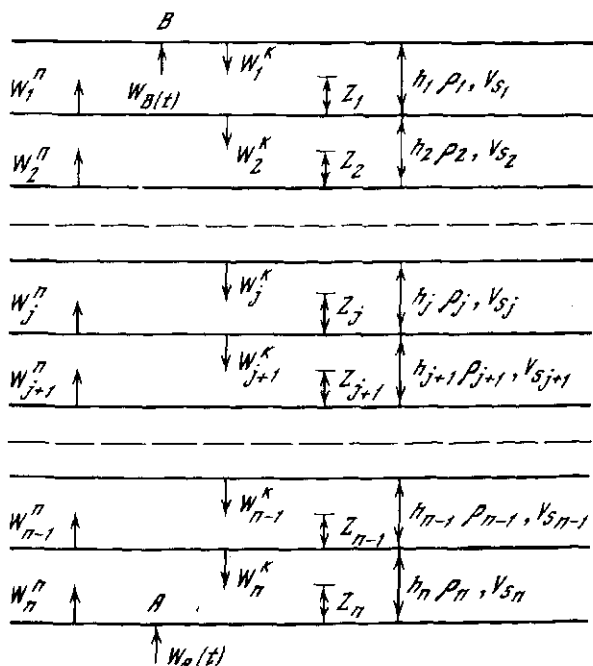 B
W₁ⁿ W_B(t) W₁ᴷ Z₁ h₁ ρ₁, V_S₁
W₂ⁿ W₂ᴷ Z₂ h₂ ρ₂, V_S₂
W_jⁿ W_jᴷ Z_j h_j ρ_j, V_Sj
W_j+1ⁿ W_j+1ᴷ Z_j+1 h_j+1 ρ_j+1, V_Sj+1
W_n-1ⁿ W_n-1ᴷ Z_n-1 h_n-1 ρ_n-1, V_Sn-1
W_nⁿ A W_nᴷ Z_n h_n ρ_n, V_Sn